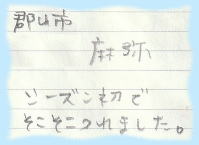 郡山市
麻弥
シーズン初で
そこそこつれました。